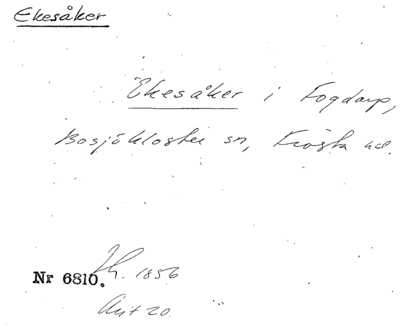 Ekesåker
Ekesåker i Fogdarp,
Bosjökloster sn, Frosta hd.
Nr 6810. Jh. 1856
Akt 20.